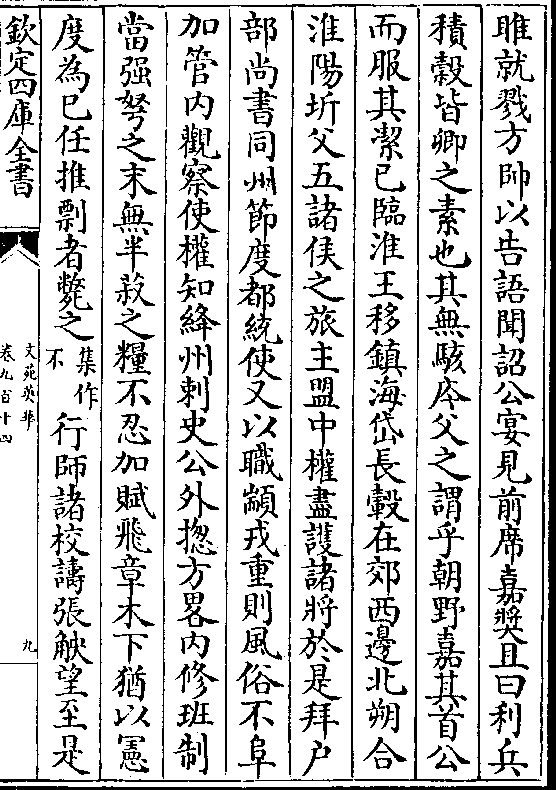 雎就戮方帥以告語聞詔公宴見前席嘉奬且曰利兵
積穀皆卿之素也其無駭庤父之謂乎朝野嘉其首公
而服其潔已臨淮王移鎮海岱長轂在郊西邊北朔合
淮陽圻父五諸侯之旅主盟中權盡護諸將於是拜户
部尚書同州節度都統使又以職顓戎重則風俗不阜
加管内觀察使權知絳州刺史公外揔方畧内修班制
當强弩之末無半菽之糧不忍加賦飛章未下猶以憲
度為已任推剽者斃之集作不行師諸校譸張觖望至是
欽定四庫全書
文苑英華
卷九百十四
九